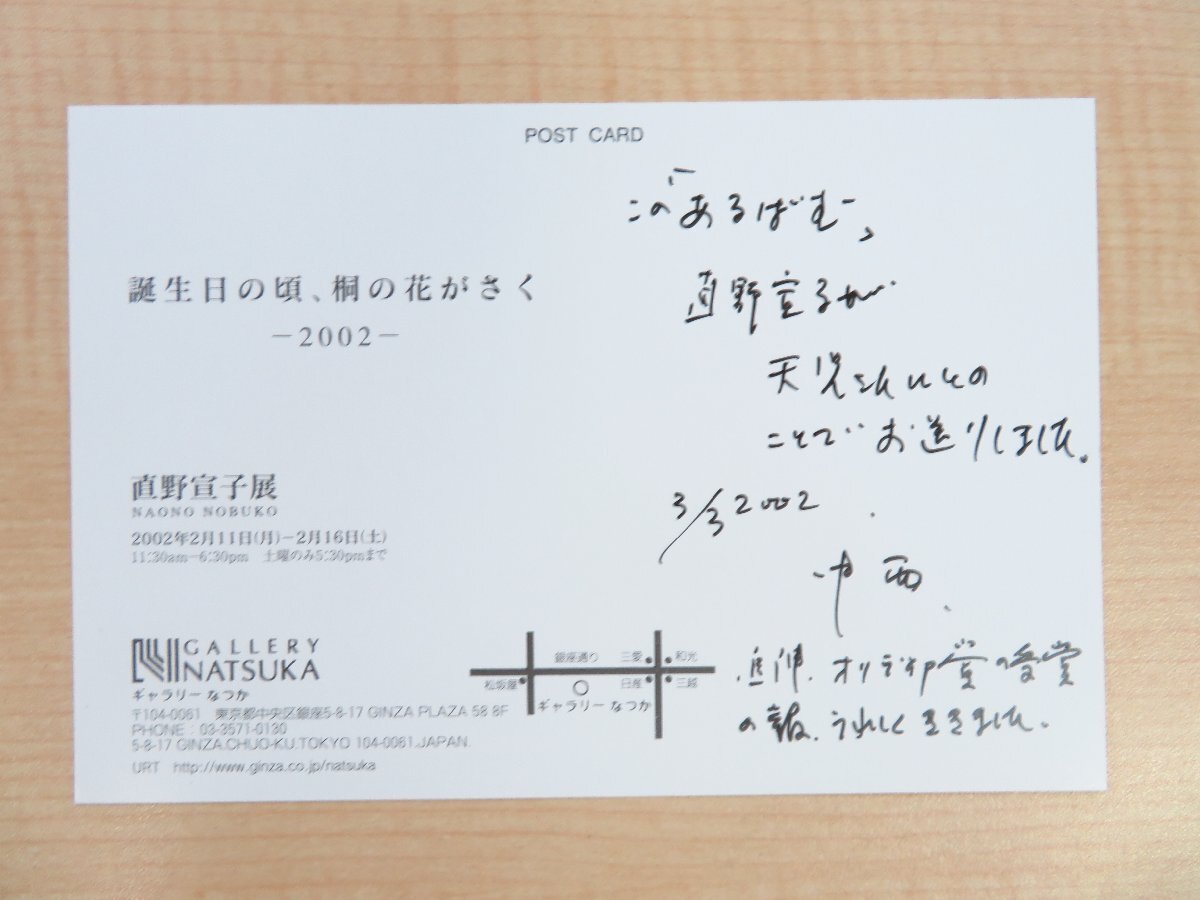 POST CARD
誕生日の頃、桐の花がさく
－2002－
直野宣子展
NAONO NOBUKO
2002年2月11日(月)－2月16日(土)
11:30am－6:30pm 土曜のみ5:30pmまで
GALLERY
NATSUKA
ギャラリー なつか
〒104-0061 東京都中央区銀座5-8-17 GINZA PLAZA 58 8F
PHONE : 03-3571-0130
5-8-17 GINZA.CHUO-KU.TOKYO 104-0061.JAPAN.
URT http://www.ginza.co.jp/natsuka
銀座通り 三愛 和光
松坂屋 日産 三越
ギャラリー なつか
この「あるばむ」
直野宣子が
天児さんにとの
ことでお送りしました。
3/3 2002
中西
追伸. オリヴィエ賞の受賞
の報、うれしくききました。